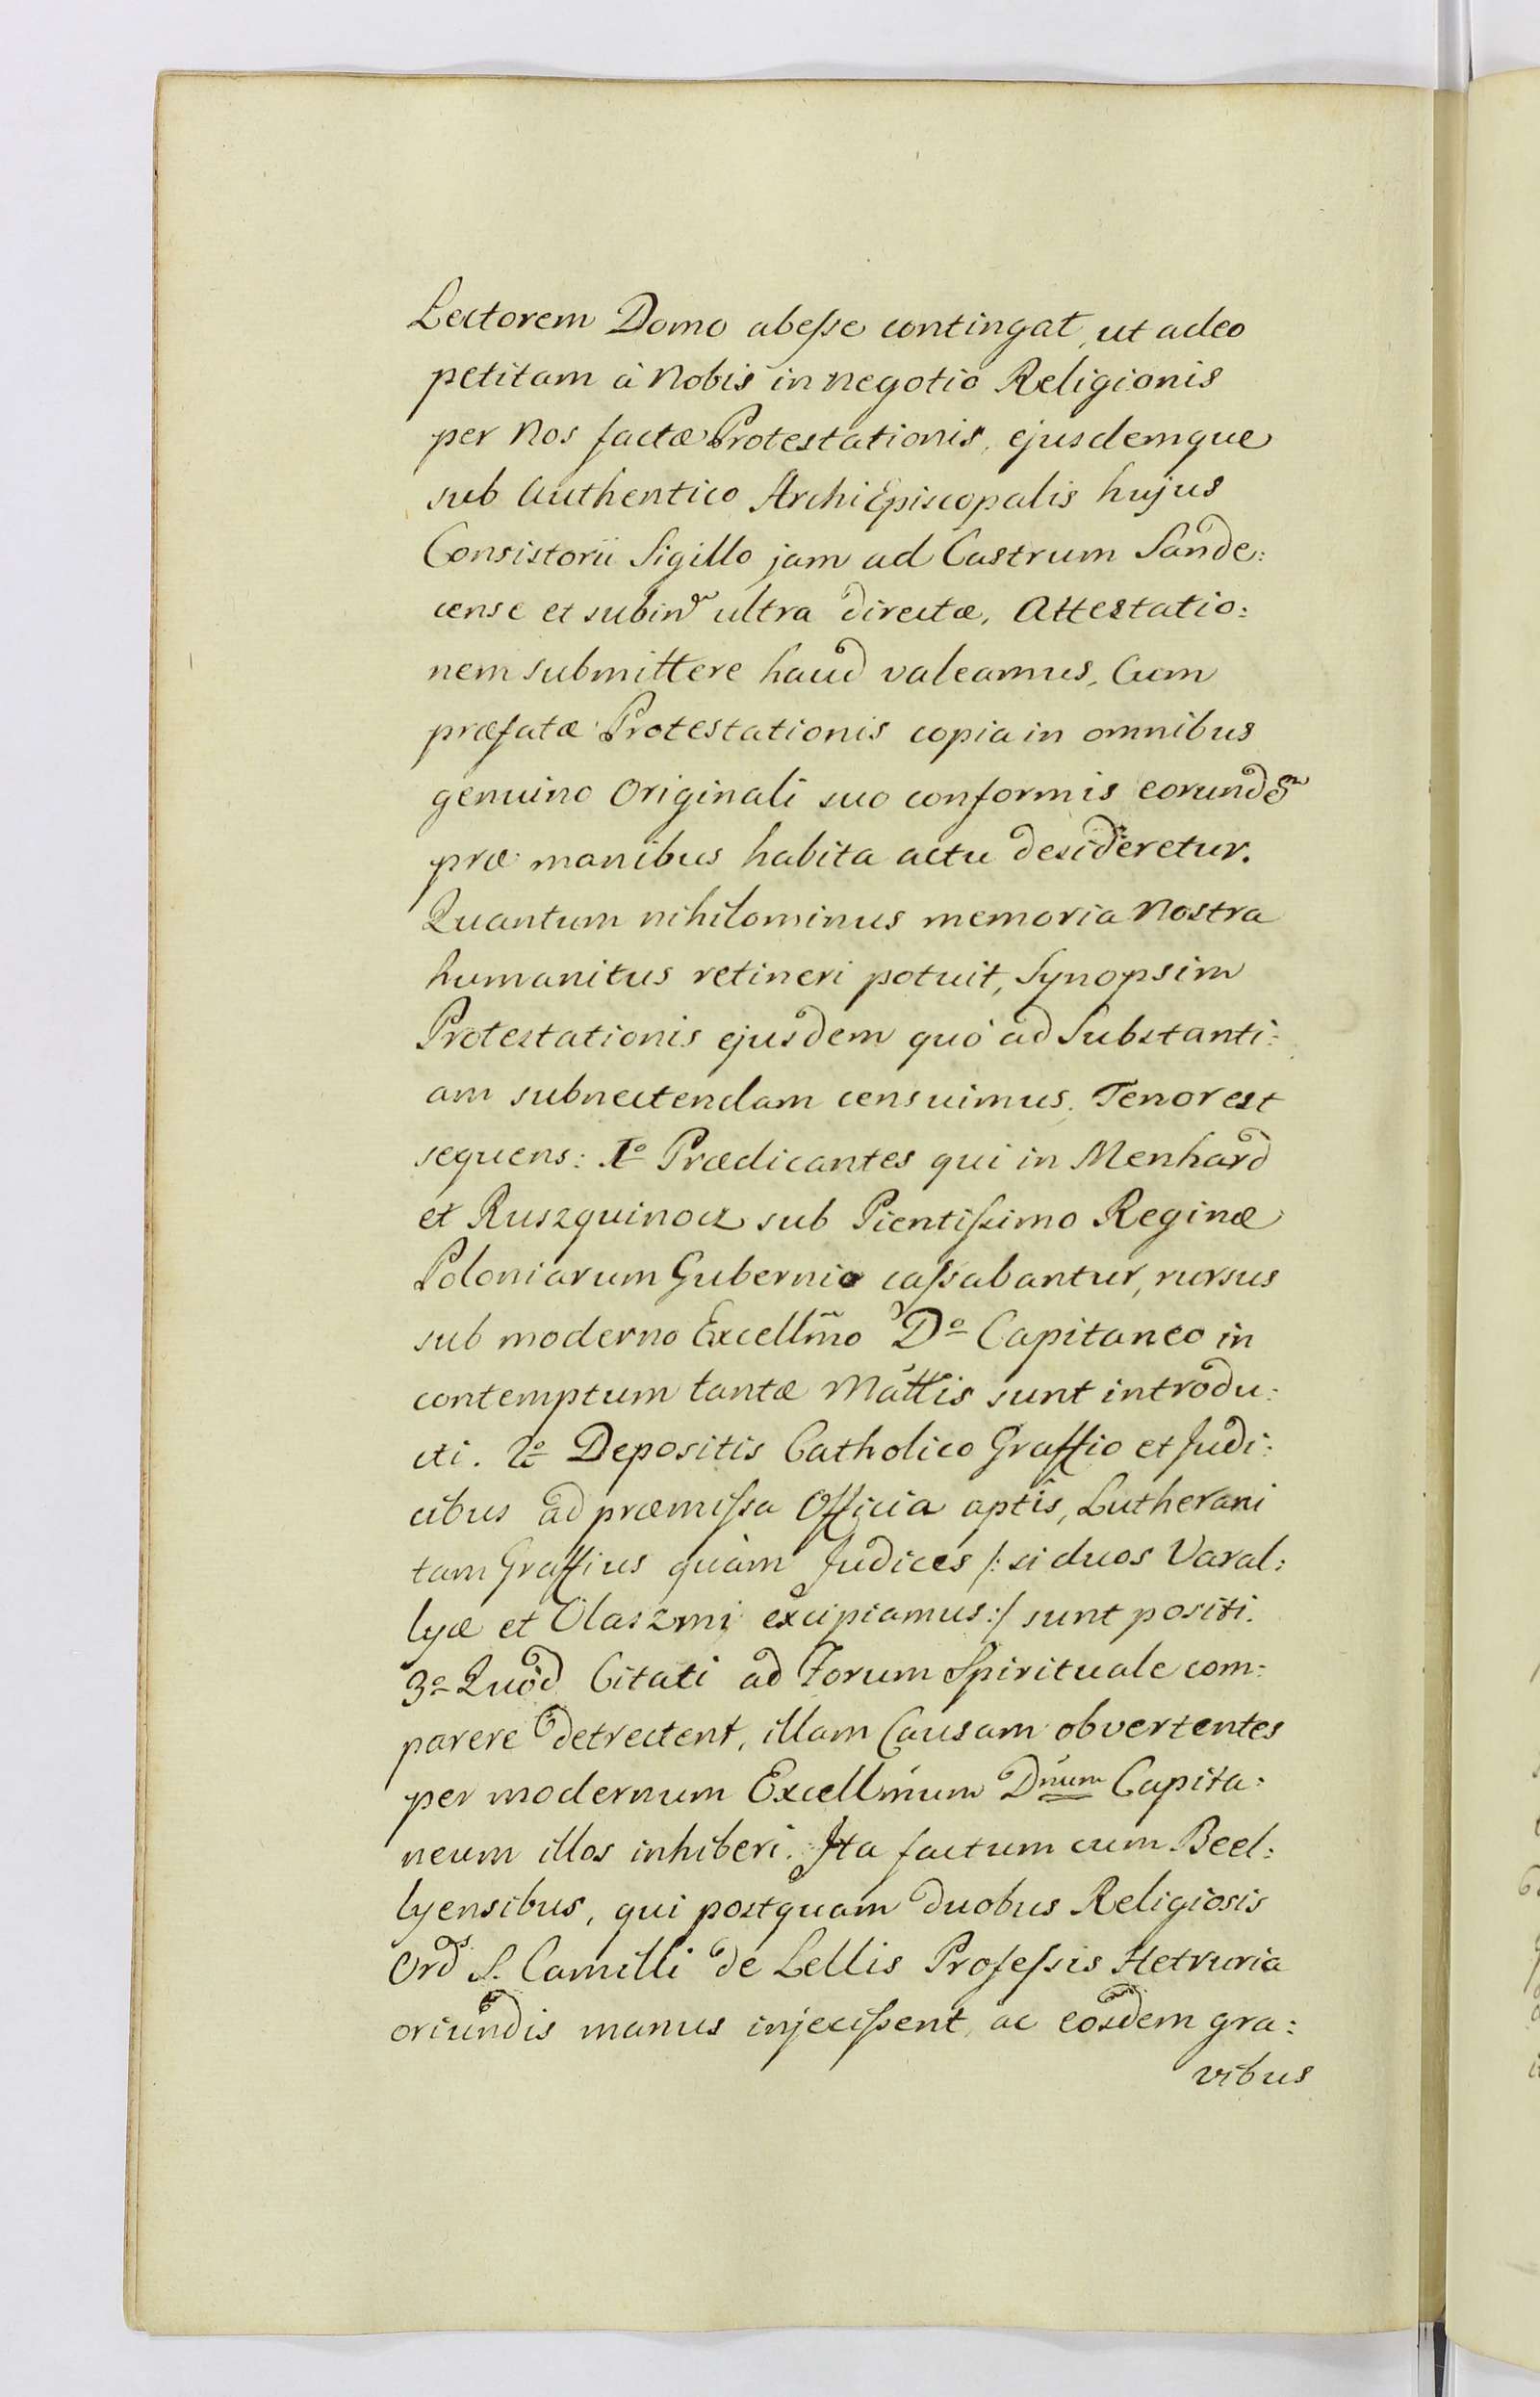 Lectorem Domo abesse contingat, ut adeo
petitam à Nobis in negotio Religionis
per Nos factæ Protestationis, ejusdemque
sub Authentico ArchiEpiscopalis hujus
Consistorii Sigillo jam ad Castrum Sande:
cense et subin ultra directæ, Attestatio:
nem submittere haud valeamus, Cum
præfatæ Protestationis copia in omnibus
genuino Originali suo conformis eorundem
præ manibus habita actu desideretur.
Quantum nihilominus memoria Nostra
humanitus retineri potuit, Synopsim
Protestationis ejusdem quò ad Substanti:
am subnectendam censuimus. Tenor est
sequens: 1o Prædicantes qui in Menhard
et Ruszquinocz sub Pientissimo Reginæ
Poloniarum Gubernio cassabantur, rursus
sub moderno Excellm̃o Do Capitaneo in
contemptum tantæ Mattis sunt introdu:
cti. 2o Depositis Catholico Graffio et Judi:
cibus ad præmissa Officia aptis, Lutherani
tam Graffius quàm Judices /: si duos Varal:
lyæ et Olaszmi excipiamus :/ sunt positi.
3o Quòd Citati ad Forum Spirituale com:
parere detrectent, illam Causam obvertentes
per modernum Excellm̃um Dnum Capita:
neum illos inhiberi. Ita factum cum Beel:
lyensibus, qui postquam duobus Religiosis
Ord S. Camilli de Lellis Professis Hetruria
oriundis manus injecissent, ac eosdem gra:
vibus